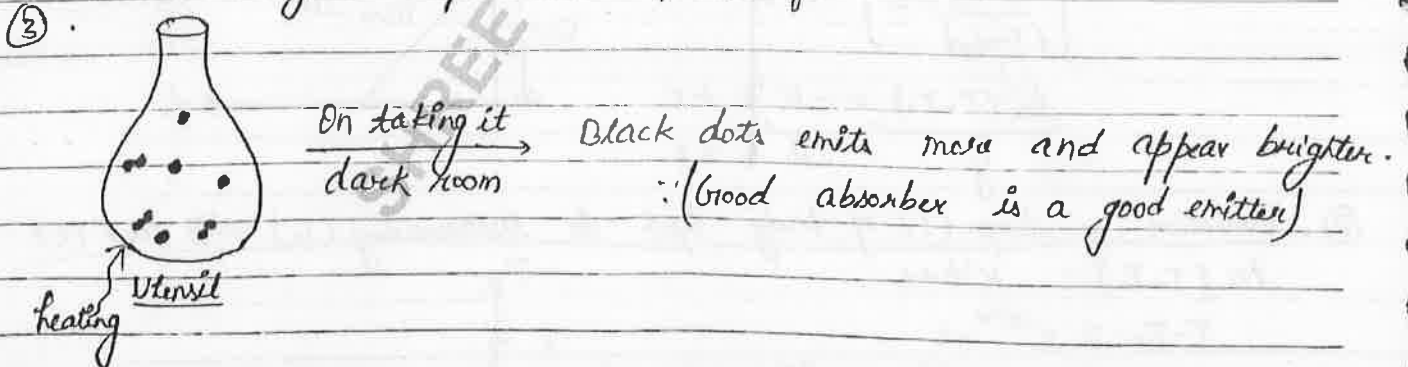 ③.
On taking it
dark room
Black dots emits more and appear brighter.
∵ (Good absorber is a good emitter)
Utensil
heating
SHREE